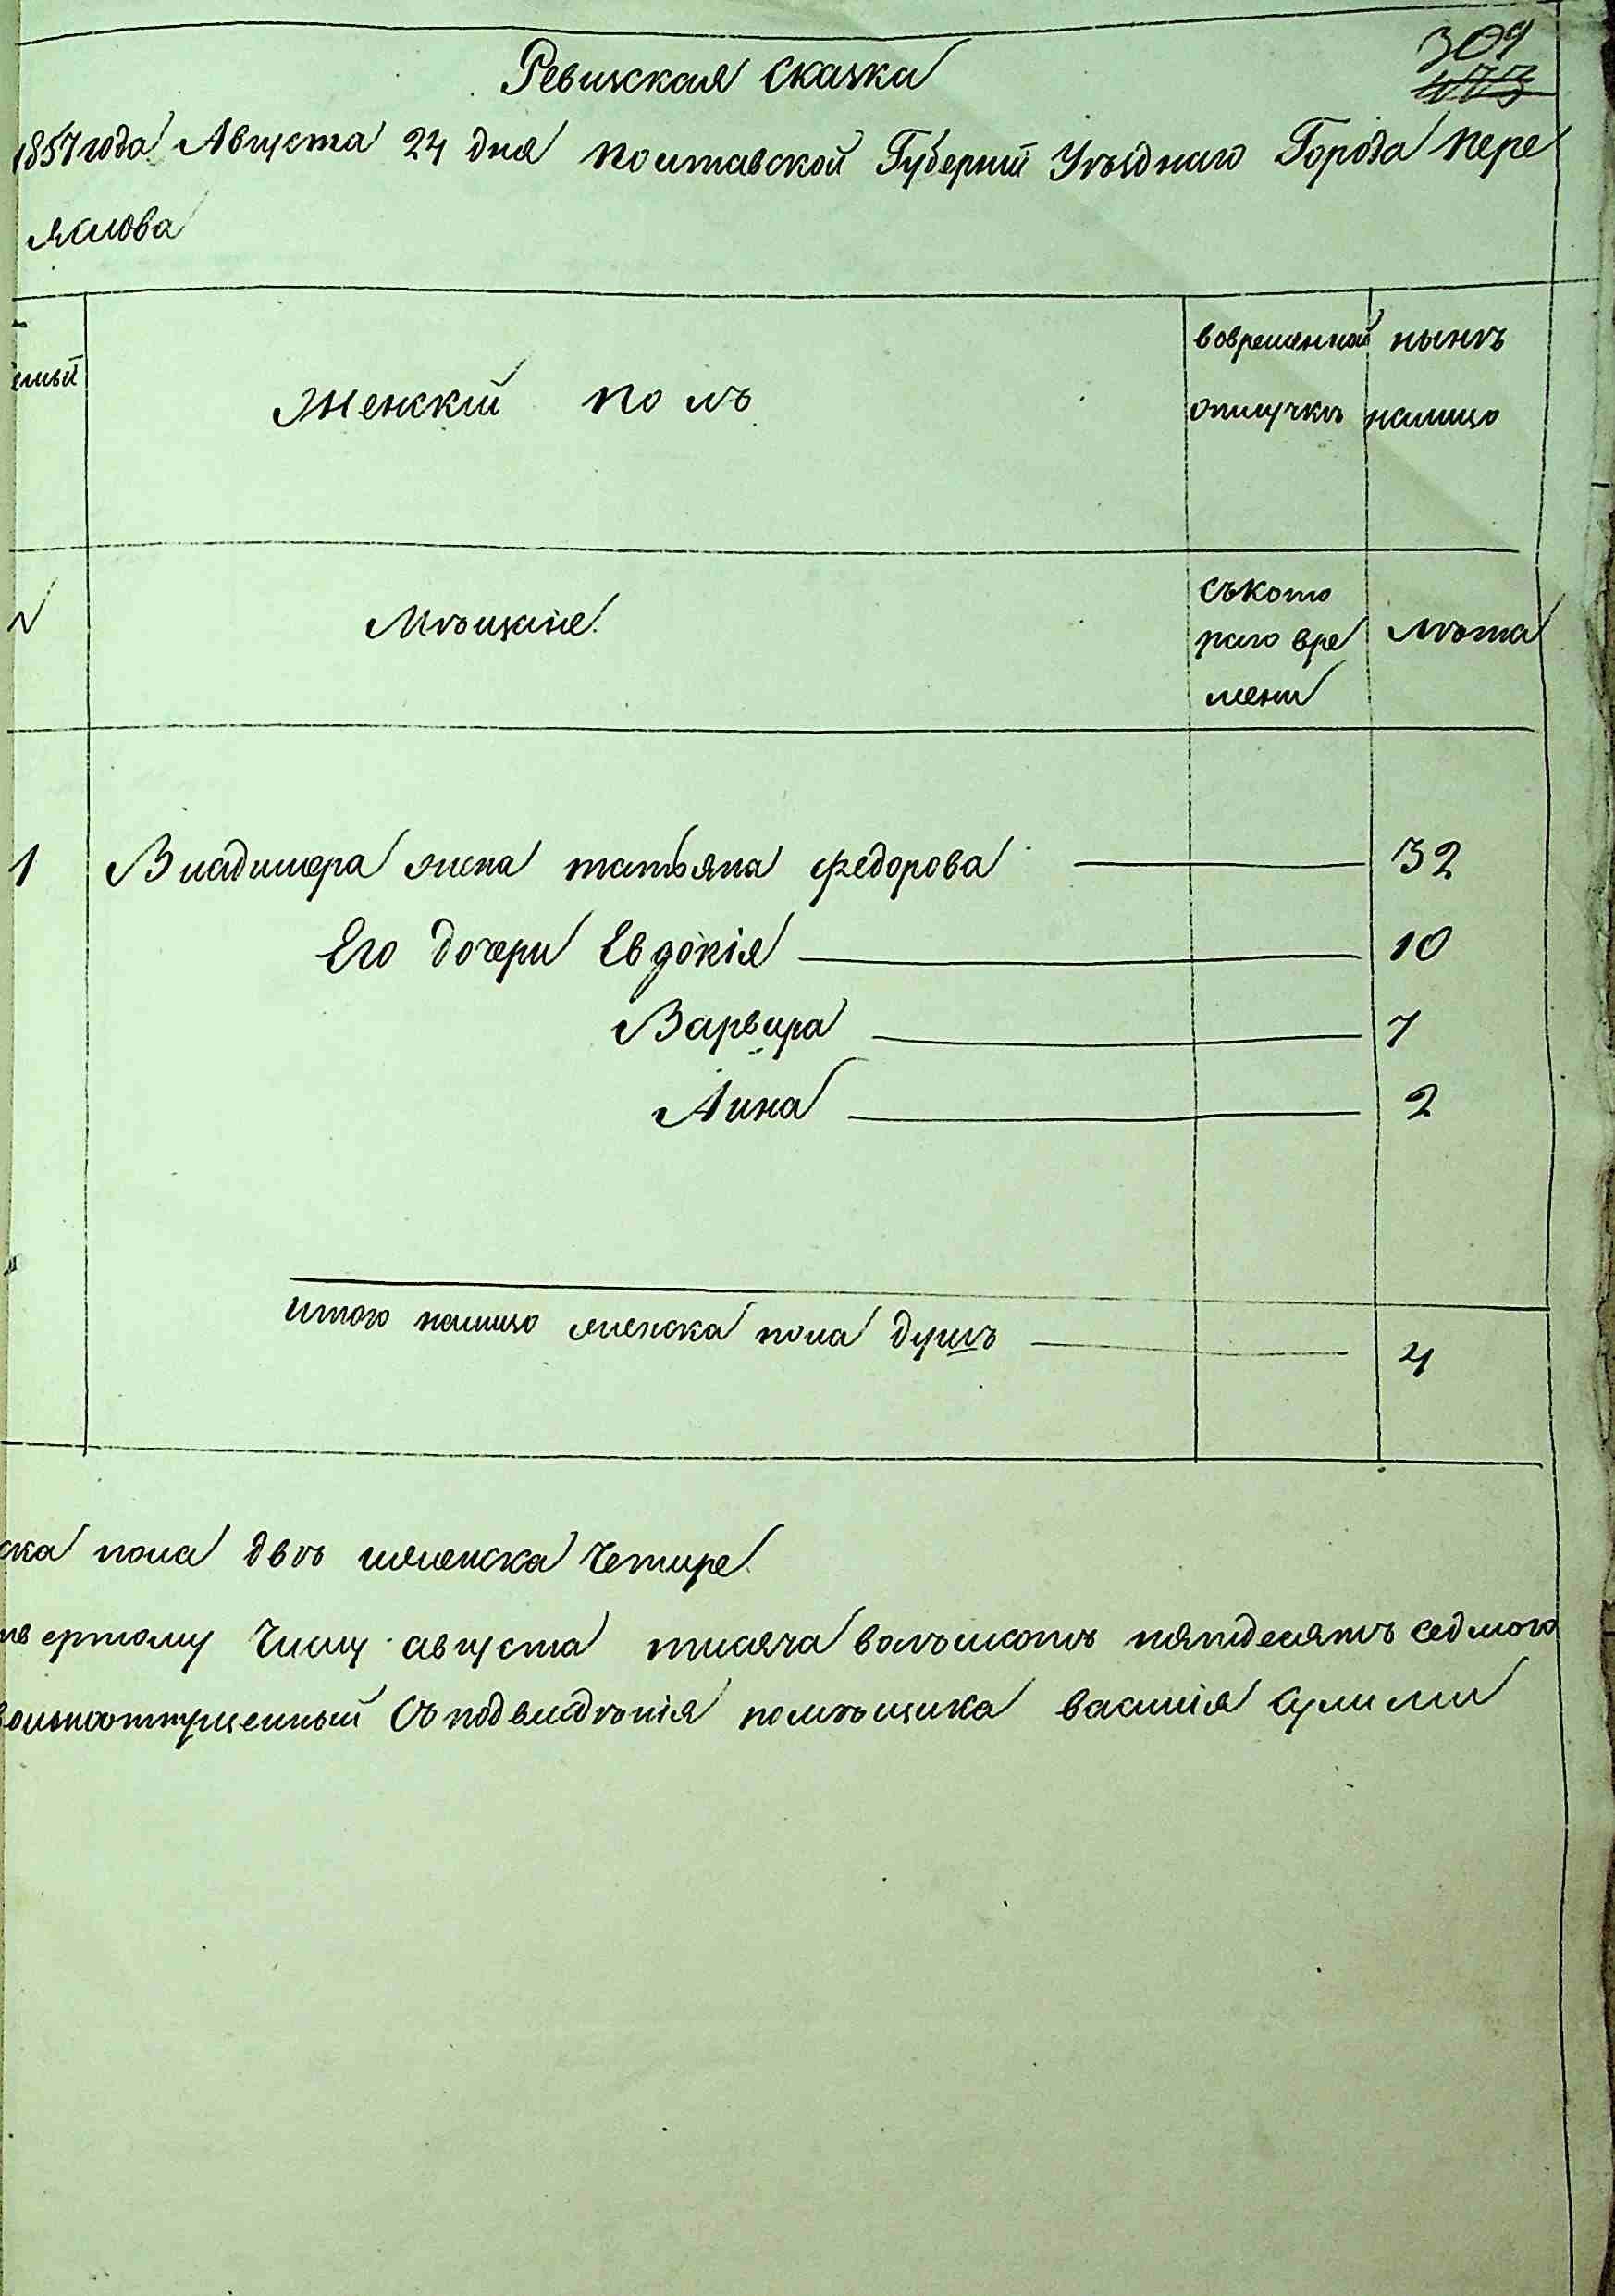 309
Ревизская Сказка
1857 года Августа 24 дня Полтавской Губерній Уѣзднаго Города Пере
яслова
Женскій полъ
вовременной
отлучкѣ
нынѣ
налицо
емый
N
Мѣщане
Съкото
раго вре
мени
Лѣта
1 Владимера жена татьяна федорова 32
Его дочери Евдокія 10
Варвара 7
Анна 2
итого налицо женска пола душъ 4
ска пола двѣ женска четире
твертому числу августа тисяча восѣмсотъ пятдесятъ седмого
вольноотпущенный Съподвладѣнія помѣщика василія Сулими